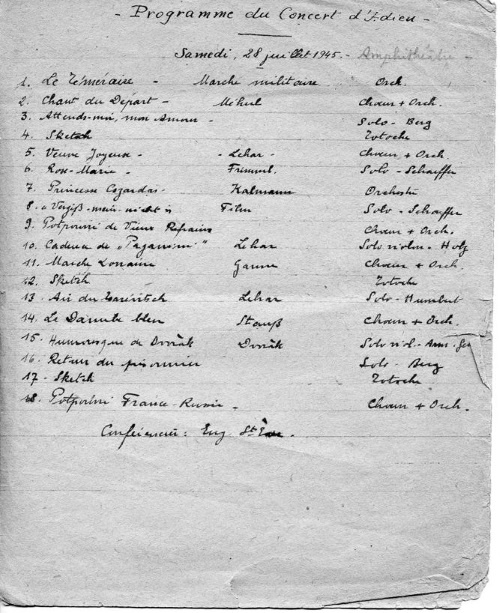 - Programme du Concert d'Adieu -
Samedi, 28 juillet 1945. - Amphithéâtre -
1. Le Téméraire - Marche militaire Orch.
2. Chant du Départ - Méhul Chœur + Orch.
3. Attends-moi, mon Amour - Solo - Berg
4. Sketch Totoche
5. Veuve Joyeuse - - Lehar - Chœur + Orch.
6. Rose-Marie - Frimml. Solo - Schaeffer
7. Princesse Czardas - Kalmann Orchestre
8. "Vergiß-mein-nicht" Film Solo - Schaeffer
9. Potpourri de Vieux Refrains Chœur + Orch.
10. Cadenza de "Paganini" Lehar Solo violon - Holz
11. Marche Lorraine Ganne Chœur + Orch.
12. Sketch Totoche
13. Air du Zarévitsch Lehar Solo - Humbert
14. Le Danube bleu Stauß Chœur + Orch.
15. Humoresque de Dvořák Dvořák Solo viol -
16. Retour du prisonnier Solo - Berg
17. Sketch Totoche
18. Potpourri France-Russie - Chœur + Orch.
Conférencier: Eug.